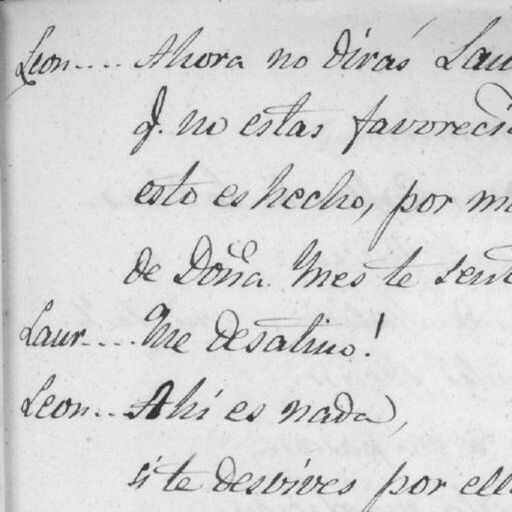 Leon.... Ahora no dirás Lau
q. no estas favoreci
esto es hecho, por m
de Doña Ines te sent
Laur.... Me desatino!
Leon... Ahi es nada,
si te desvives por ell